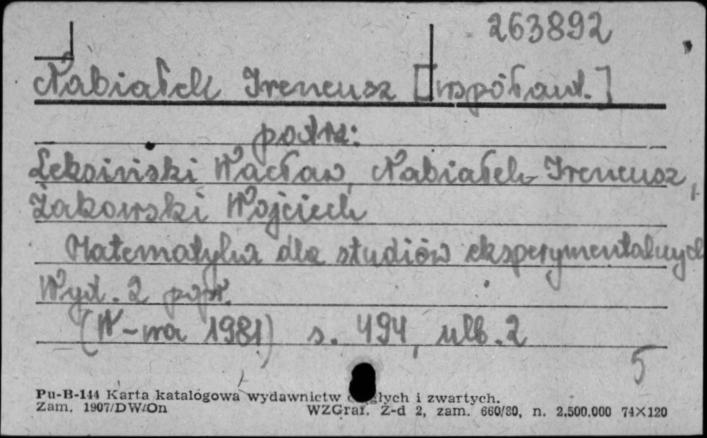 263892
Nabiałek Ireneusz [współaut.]
patrz:
Leksiński Wacław, Nabiałek Ireneusz,
Żakowski Wojciech
Matematyka dla studiów eksperymentalnych
Wyd. 2 popr.
(W-wa 1981) s. 494, nlb. 2
5
Pu-B-144 Karta katalogowa wydawnictw ciągłych i zwartych.
Zam. 1907/DW/On WZGraf. Z-d 2, zam. 660/80, n. 2.500.000 74×120